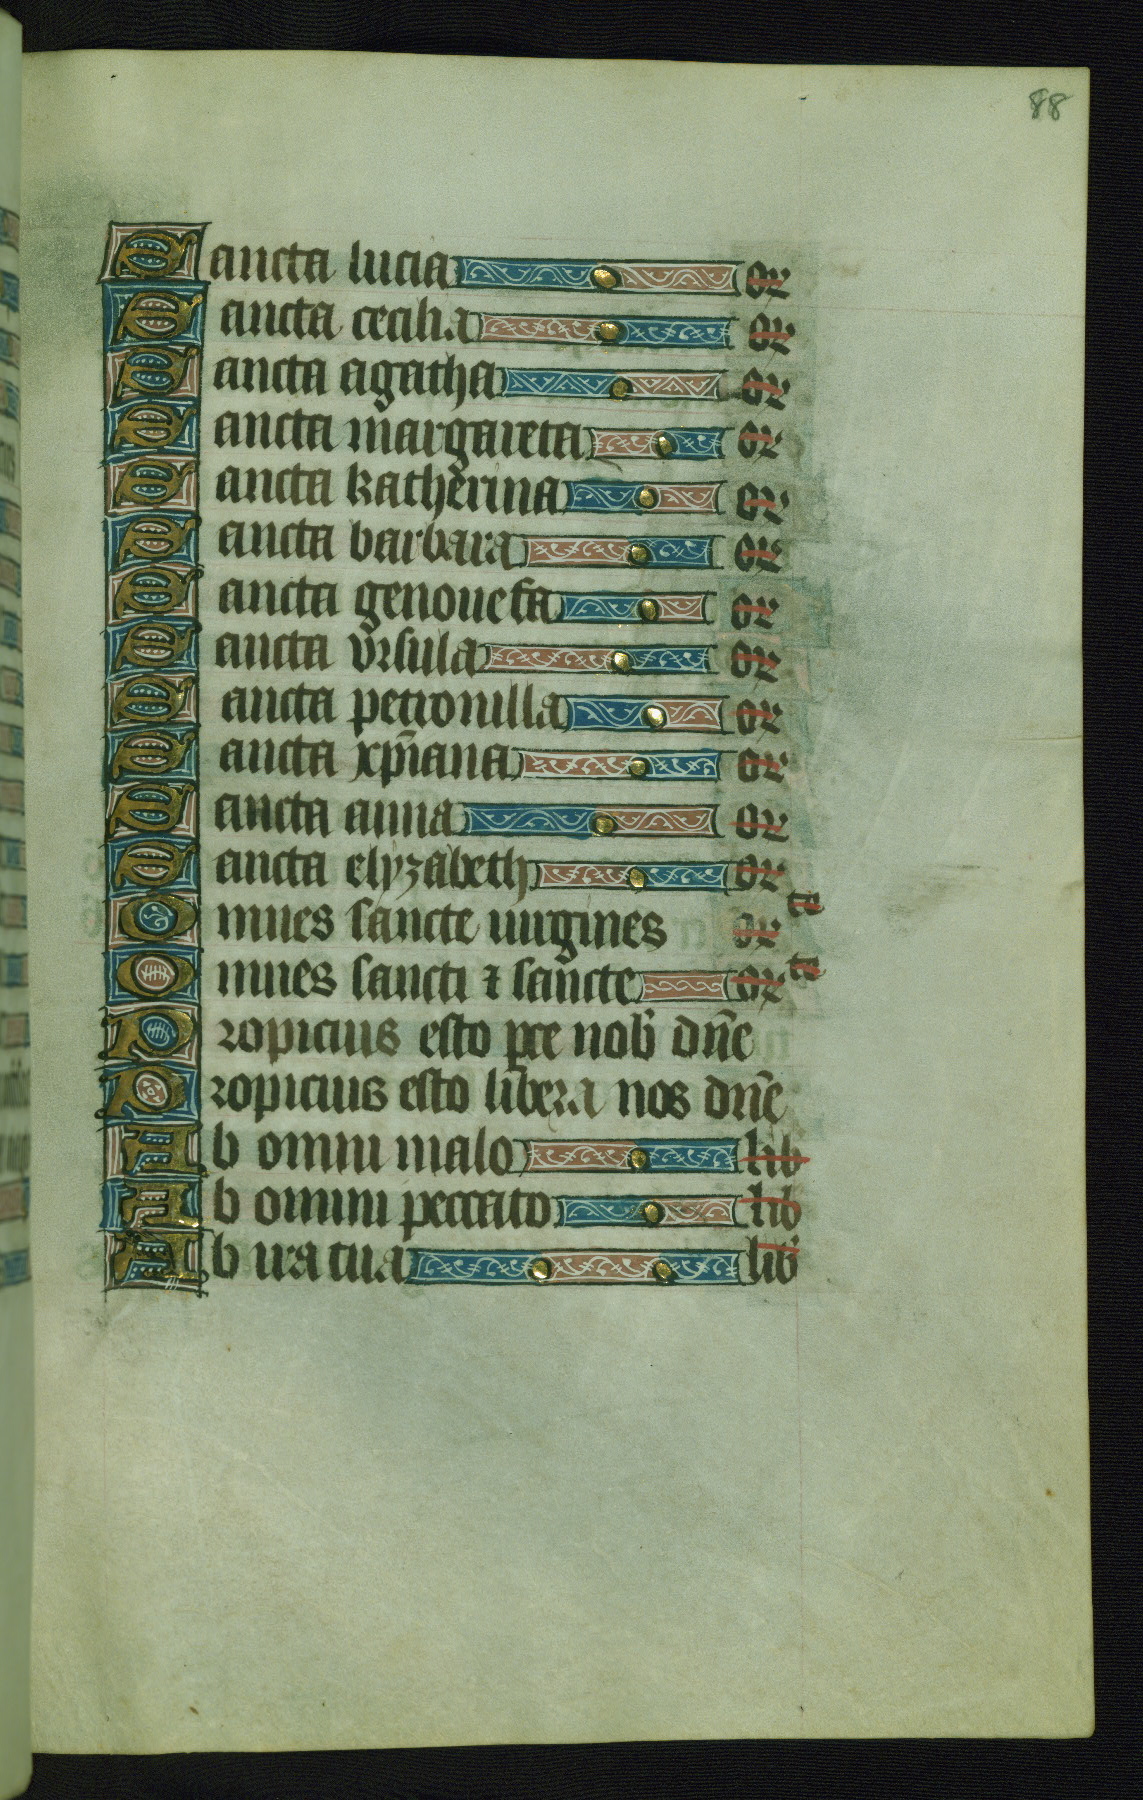 88
Sancta lucia or
Sancta cecilia or
Sancta agatha or
Sancta margareta or
Sancta katherina or
Sancta barbara or
Sancta genouefa or
Sancta vrsula or
Sancta petronilla or
Sancta xp̄iana or
Sancta anna or
Sancta elyzabeth or
Omnes sancte uirgines orte
Omnes sancti ⁊ sancte orte
Propicius esto pce nob̄ dn̄e
Propicius esto libera nos dn̄e
Ab omni malo lib
Ab omni peccato lib
Ab ira tua lib